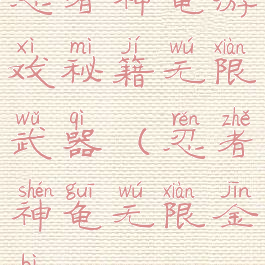 忍者神龟游
xì mì jí wú xiàn
戏秘籍无限
wǔ qì rěn zhě
武器（忍者
shén guī wú xiàn jīn
神龟无限金
bì